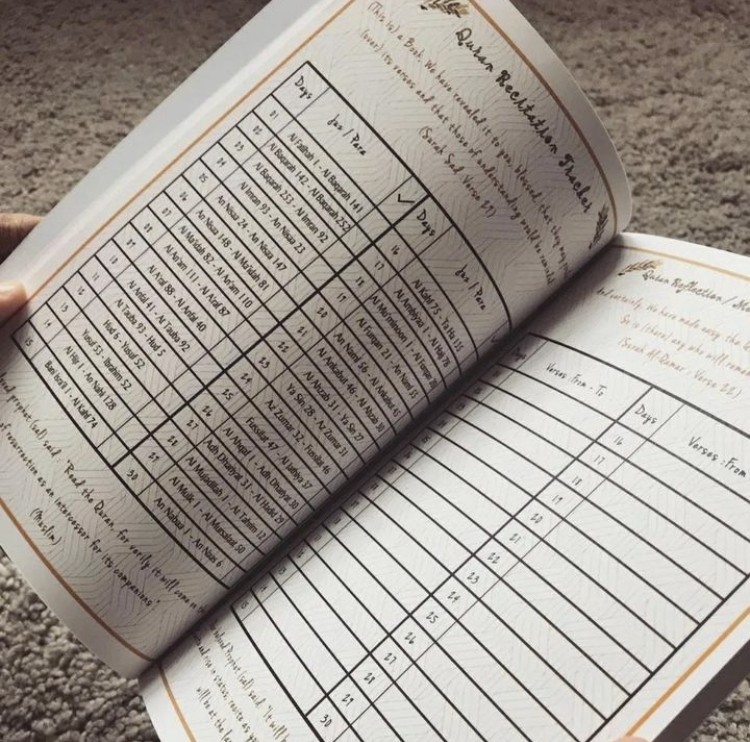 Quran Recitation Tracker
(This is) a Book, We have revealed it to you, blessed, that they may
(over) its verses and that those of understanding would be
(Surah Sad, Verse
Days Juz / Para ✓
01 Al Fatihah 1 - Al Baqarah 141
02 Al Baqarah 142 - Al Baqarah 252
03 Al Baqarah 253 - Al Imran 92
04 Al Imran 93 - An Nisaa 23
05 An Nisaa 24 - An Nisaa 147
06 An Nisaa 148 - Al Ma'idah 81
07 Al Ma'idah 82 - Al An'am 110
08 Al An'am 111 - Al A'raf 87
09 Al A'raf 88 - Al Anfal 40
10 Al Anfal 41 - Al Tauba 92
11 Al Tauba 93 - Hud 5
12 Hud 6 - Yusuf 52
13 Yusuf 53 - Ibrahim 52
14 Al Hijr 1 - An Nahl 128
15 Bani Isra'il 1 - Al Kahf 74
Days Juz / Para
16 Al Kahf 75 - Ta Ha 135
17 Al Anbiyaa 1 - Al Hajj 78
18 Al Mu'minoon 1 - Al Furqan 20
19 Al Furqan 21 - An Naml 55
20 An Naml 56 - Al Ankabut 45
21 Al Ankabut 46 - Al Ahzab 30
22 Al Ahzab 31 - Ya Sin 27
23 Ya Sin 28 - Az Zumar 31
24 Az Zumar 32 - Fussilat 46
25 Fussilat 47 - Al Jathiya 37
26 Al Ahqaf 1 - Adh Dhariyat 30
27 Adh Dhariyat 31 - Al Hadid 29
28 Al Mujadilah 1 - Al Tahrim 12
29 Al Mulk 1 - Al Mursalaat 50
30 An Nabaa 1 - An Naas 6
prophet (sal) said : "Read the Quran, for verily it will come
of resurrection as an intercessor for its companions"
(Muslim)
Quran Reflection /
certainly, We have made easy the
So is (there) any who will
(Surah Al Qamar : Verse 22)
Days Verses : From - To
Days Verses : From
16
17
18
19
20
21
22
23
24
25
26
27
28
29
30
Prophet (sal) said: "It will
and rise in status, recite as
will be at the